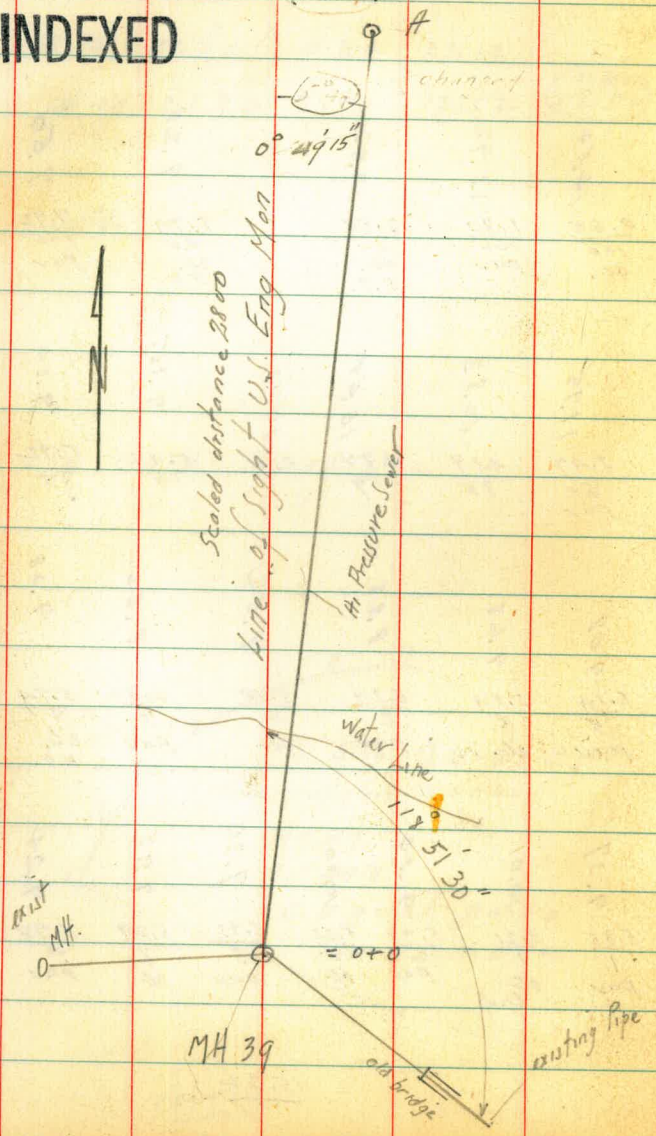 INDEXED
A
changed
0° 49' 15"
Scaled distance 2800
Line of Sight U.S. Eng Mon
Air Pressure Sewer
N
Water Line
118° 51' 30"
exist
MH.
= 0+0
MH 39
old bridge
existing Pipe